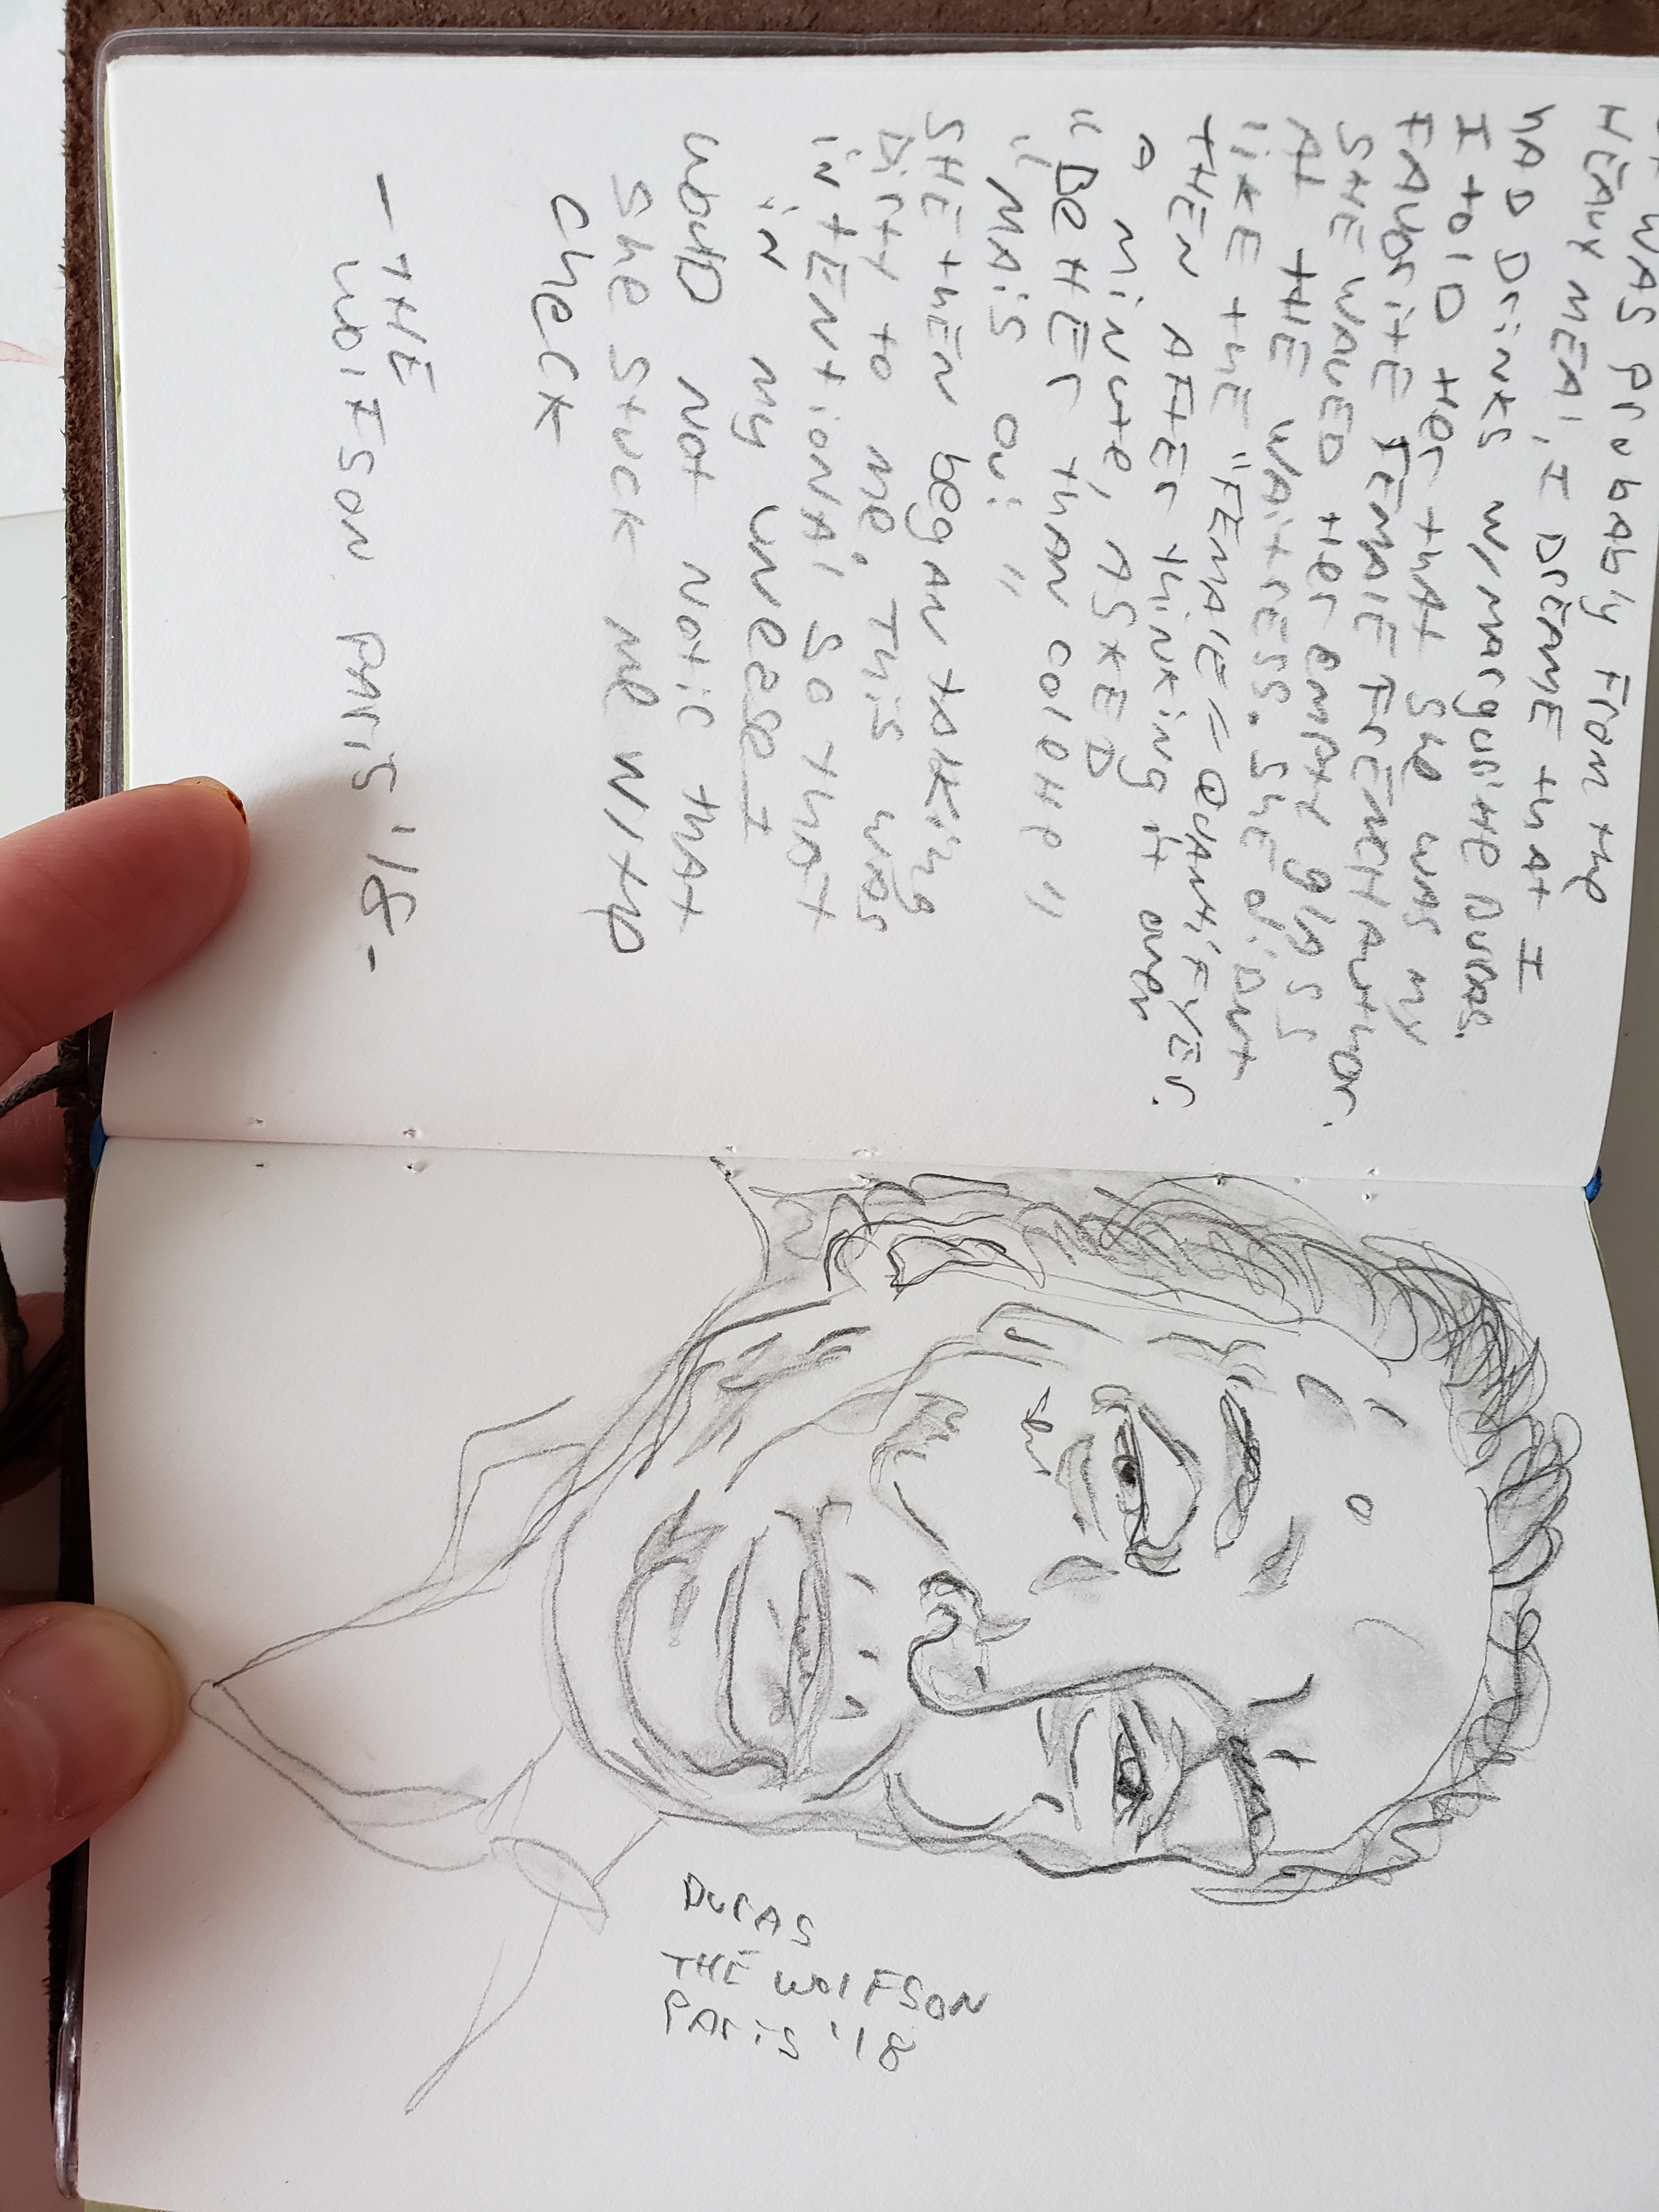 IT WAS PrObAbly From the
HEAVY MEAl, I DrEAME thAt I
hAD DrinkS w/MArguritte DurAS.
I tolD Her thAt She wAS My
FAVOritE FEMAlE FrENCH Author.
SHE WAVED Her empty glASS
At tHE WAitrESS. She diDnt
likE thE "FEMAlE" QUANtiFYEr.
THEN AFtEr thinking it over
A MiNUte, ASKED
"BettEr thAN ColEttE"
"MAiS Oui"
SHE thEN begAN tAlking
Dirty to me, ThiS wAS
iNtENtioNAl So thAt
iN my
woulD Not Notic thAt
She Stuck me w/the
CHeCK
- THE
WOlFSON PAriS '18 -
DurAS
THE WolFSON
PAriS '18